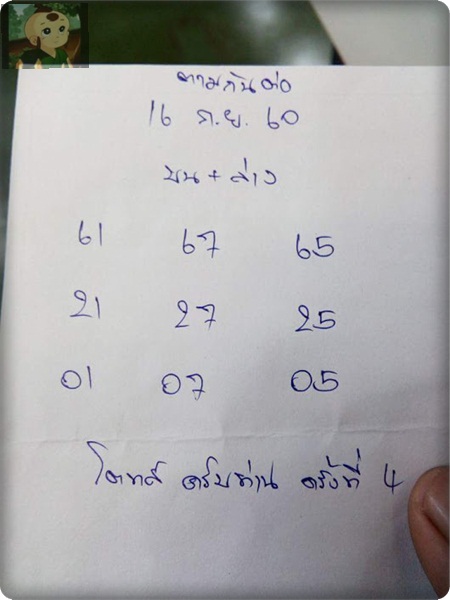 ตามกันต่อ
16 ก.ย. 60
บน + ล่าง
61 67 65
21 27 25
01 07 05
โชคดี ครับท่าน ครั้งที่ 4